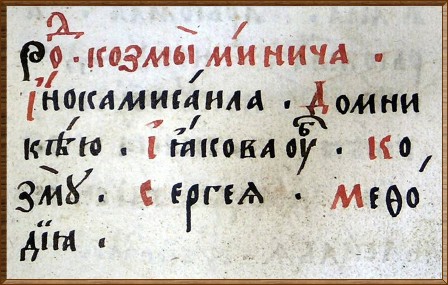 Роⷣ · козмы̀ ми́нича ·
І҆нокамиса́ила · Домни
кѣю · І҆ꙗковаоуⷠ · Ко
змꙋ̀ · Сергеѧ · Меѳо́
дїꙗ ·